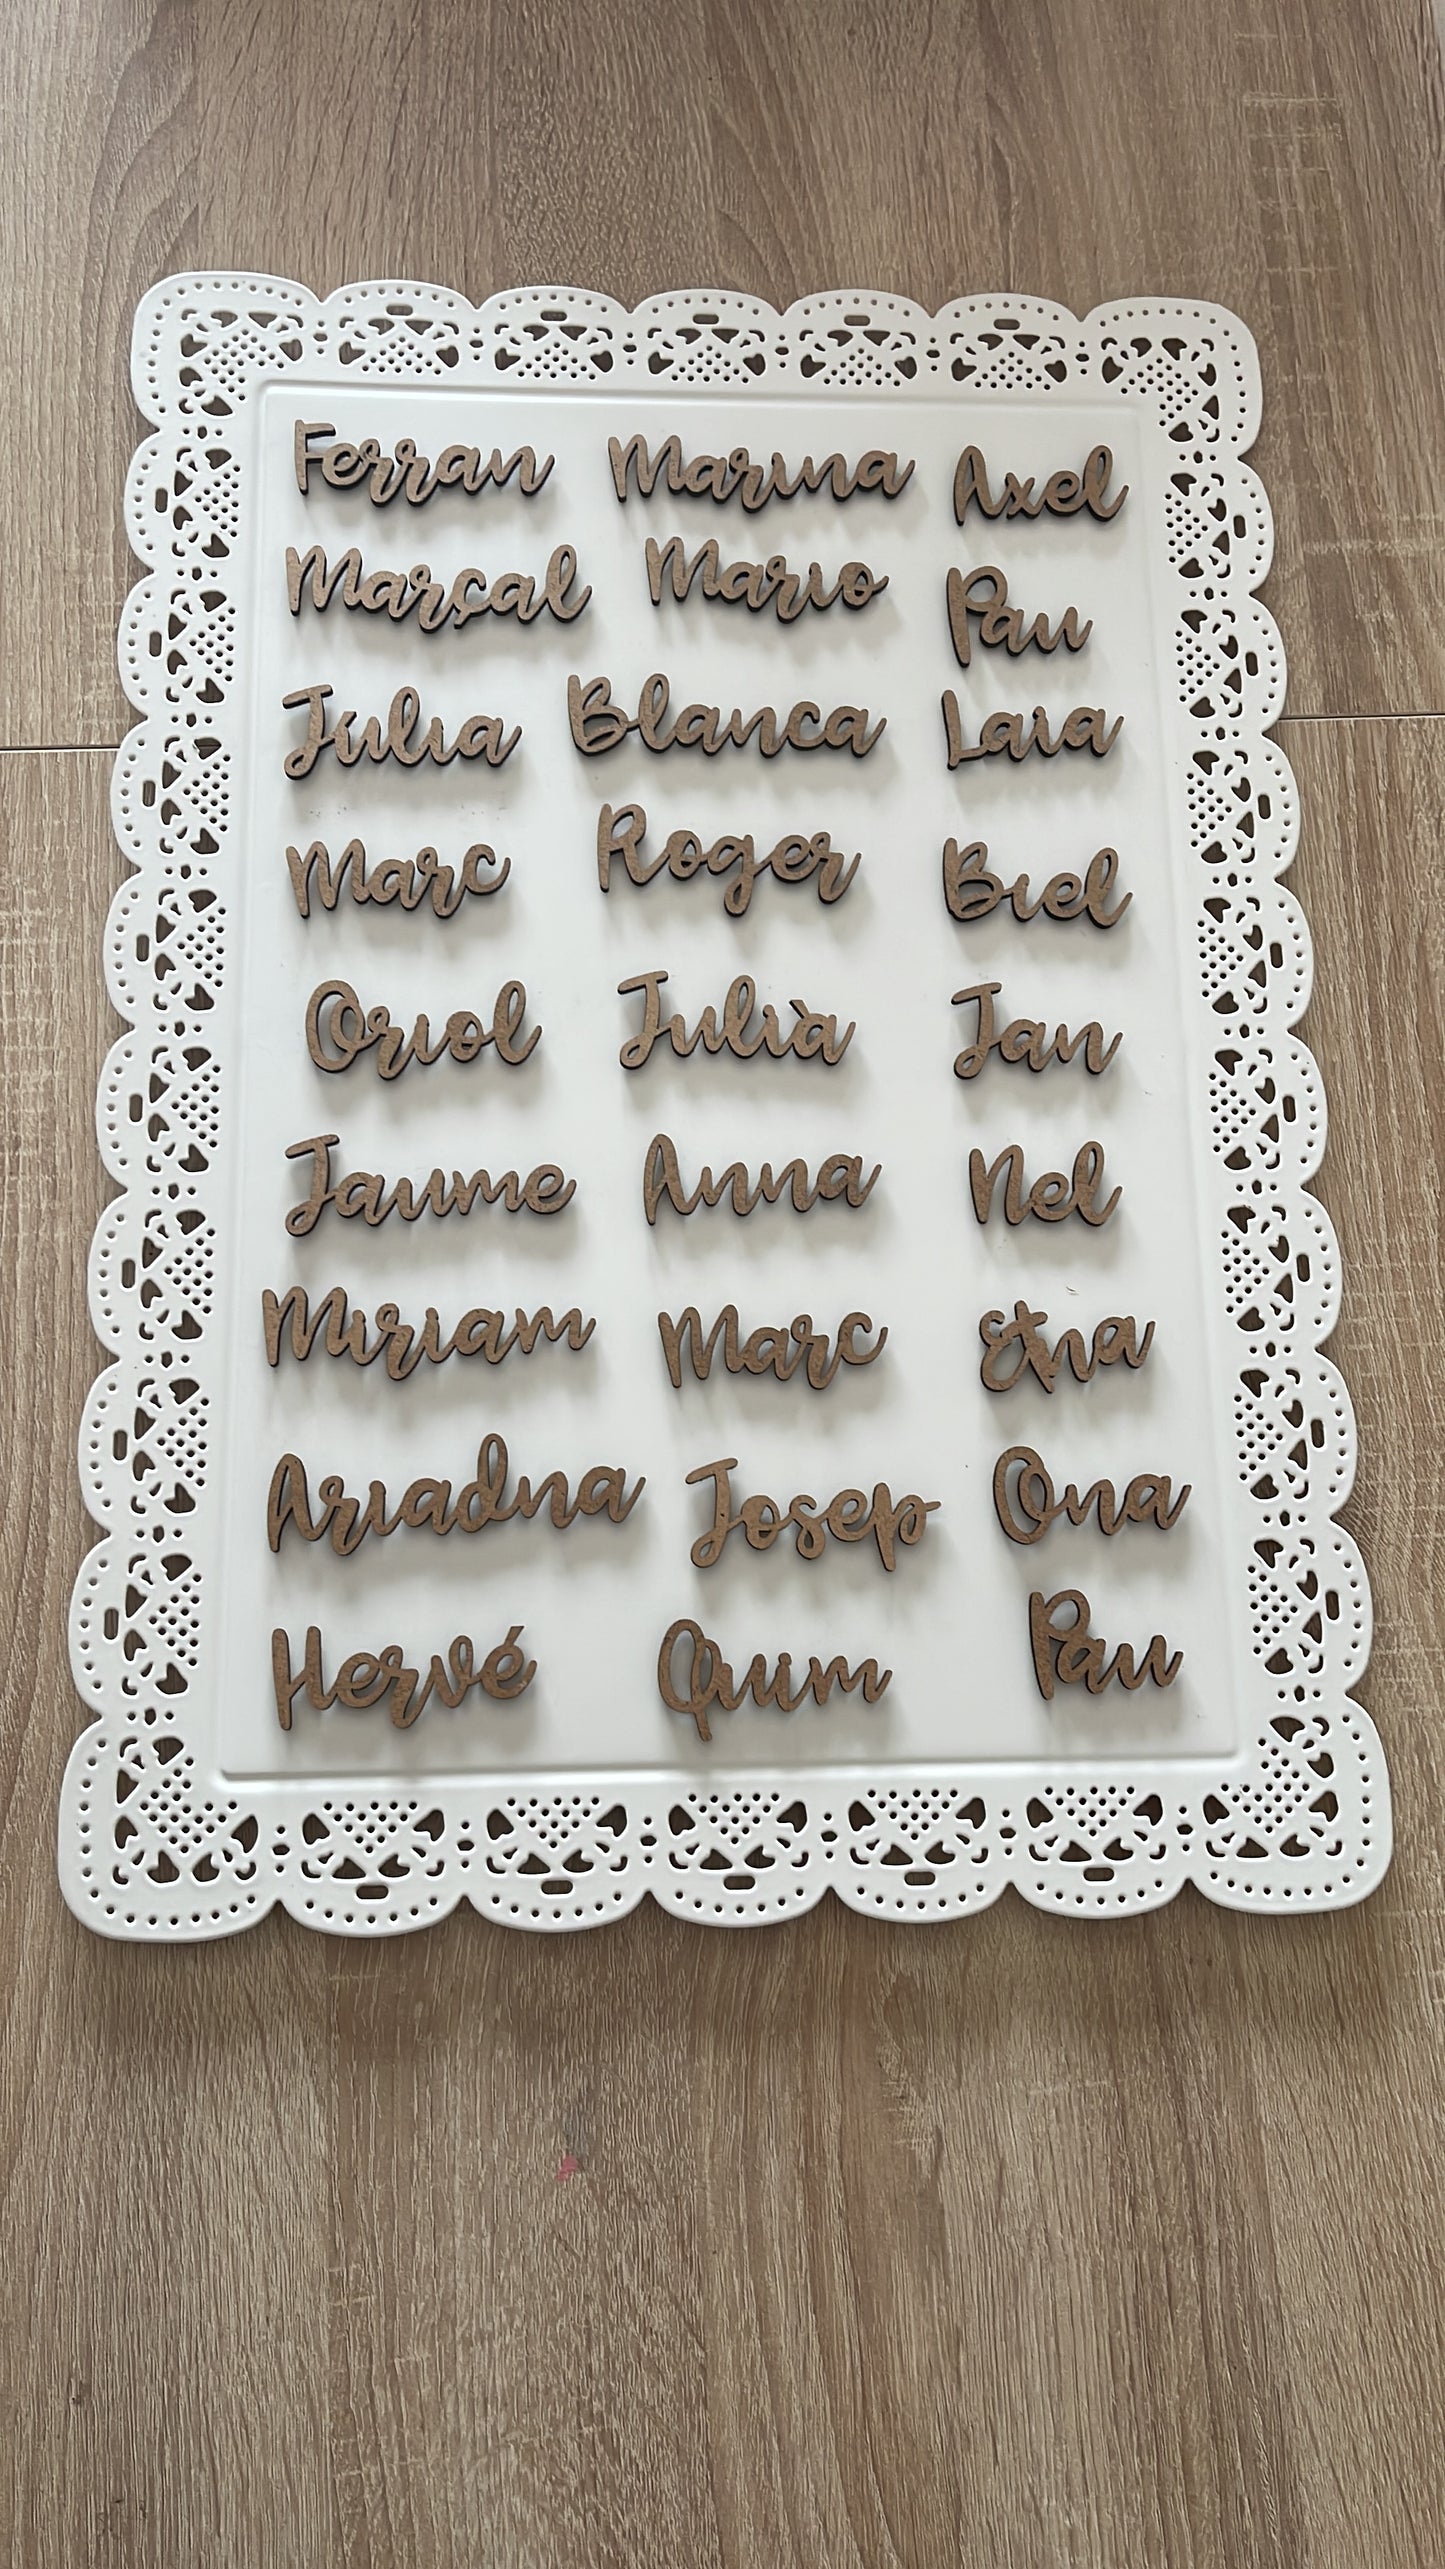 Ferran Marina Axel
Marçal Mario Pau
Júlia Blanca Laia
Marc Roger Biel
Oriol Julià Jan
Jaume Anna Nel
Miriam Marc Etna
Ariadna Josep Ona
Hervé Quim Pau